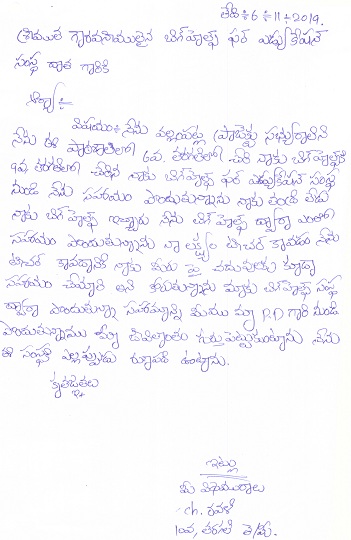 తేది : 6 : 11 : 2019.
శ్రీయుత గౌరవనీయులైన బిగ్ హెల్ప్ ఫర్ ఎడ్యుకేషన్
సంస్థ దాత గారికి
ఆర్యా :-
విషయం : నేను
నేను ఈ పాఠశాలలో 6వ. తరగతిలో చేరి నాకు బిగ్ హెల్ప్
9వ తరగతిలో చేరిన నాకు బిగ్ హెల్ప్ ఫర్ ఎడ్యుకేషన్ సంస్థ
నుండి నేను సహాయం పొందుతున్నాను నాకు తండ్రి లేడు
నాకు బిగ్ హెల్ప్ ఇచ్చారు నేను బిగ్ హెల్ప్ ద్వారా ఎంతో
సహాయం పొందుతున్నాను నా లక్ష్యం టీచర్ కావడం నేను
టీచర్ కావడానికి నాకు మీరు పై చదువులకు కూడా
సహాయం చేయాలి అని కోరుతున్నాను మాకు బిగ్ హెల్ప్ సంస్థ
ద్వారా పొందుతున్న సహాయాన్ని మేము మా P.D గారి నుండి
పొందుతున్నాము జీవితాంతం గుర్తుపెట్టుకుంటాను నేను
ఈ సంస్థకి ఎల్లప్పుడు ఉంటాను.
కృతజ్ఞతలు
ఇట్లు
మీ విధేయురాలు
ch. రవళి
10వ, తరగతి